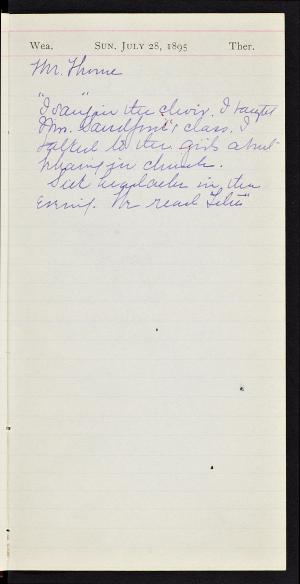 Wea. SUN. JULY 28, 1895 Ther.
Mr. Thorne
"I sang" in the choir. I taught
Mrs. Sandford's class. I
talked to the girls about
in church.
Sick headache in the
evening. We read "Titus"